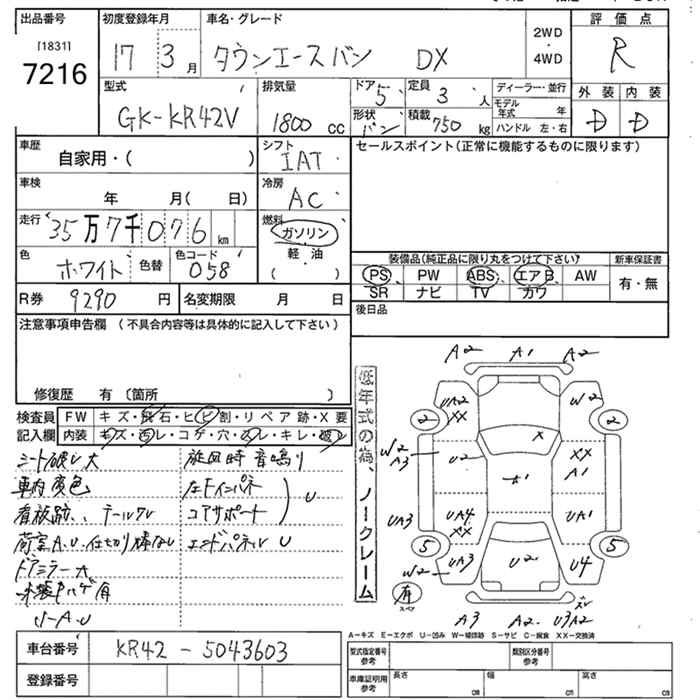 出品番号 初度登録年月 車名・グレード 評価点
[1831]
7216
17 3月 タウンエースバン DX
2WD
・
4WD
R
型式 排気量 ドア 5 定員 3人 ディーラー・並行 外装 内装
GK-KR42V 1800cc 形状 バン 積載 750kg モデル年式 年
ハンドル 左・右
D D
車歴 シフト セールスポイント(正常に機能するものに限ります)
自家用・( ) IAT
車検 冷房
年 月( 日) AC
走行 35万7千076km 燃料 ガソリン
軽油
( )
色 ホワイト 色替 色コード 058
装備品(純正品に限り丸をつけて下さい) 新車保証書
PS PW ABS エアB AW 有・無
SR ナビ TV カワ
R券 9290円 名変期限 月 日 後日品
注意事項申告欄 (不具合内容等は具体的に記入して下さい)
修復歴 有 〔箇所 〕
検査員 FW キズ・飛石・ヒビ割・リペア跡・X要
記入欄 内装 キズ・汚レ・コゲ・穴・スレ・キレ・破レ
シート破レ大 旋回時音鳴り
車内変色 左Fインパネ
看板跡、テールワレ コアサポート U
荷室A.U.仕切り棒なし エンドパネルU
ドアミラー大
未装Pハゲ有
リ-A.U
低年式の為、ノークレーム
A2 A1 A2
UA2 W2
XX
2 2
X
W2 U2 XX
A3 A1
A1
UA3 UA4 UA1
XX
5 5
UA3 U2 U4
W2
有
スペア
A3 A2 U3A2
A-キズ E-エクボ U-凹み W-補修跡 S-サビ C-腐食 XX-交換済
車台番号 KR42-5043603
登録番号
型式指定番号 参考 類別区分番号 参考
車庫証明用 参考 長さ cm 幅 cm 高さ cm